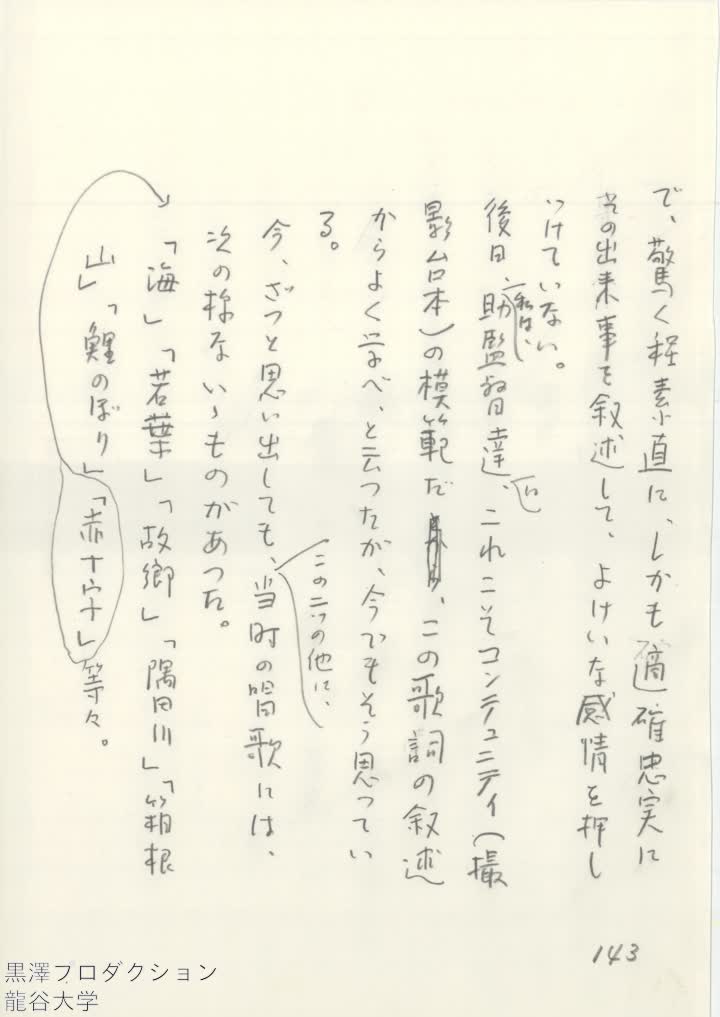 で、驚く程素直に、しかも適確忠実に
その出来事を叙述して、よけいな感情を押し
つけていない。
私は、
後日、助監督達、これこそコンテュニティ(撮
に
影台本)の模範だ、この歌詞の叙述
からよく学べ、と云つたが、今でもそう思つてい
る。
この二つの他に、
今、ざつと思い出しても、当時の唱歌には、
次の様ないゝものがあつた。
「海」「若葉」「故郷」「隅田川」「箱根
山」「鯉のぼり」「赤十字」等々。
143
黒澤プロダクション
龍谷大学